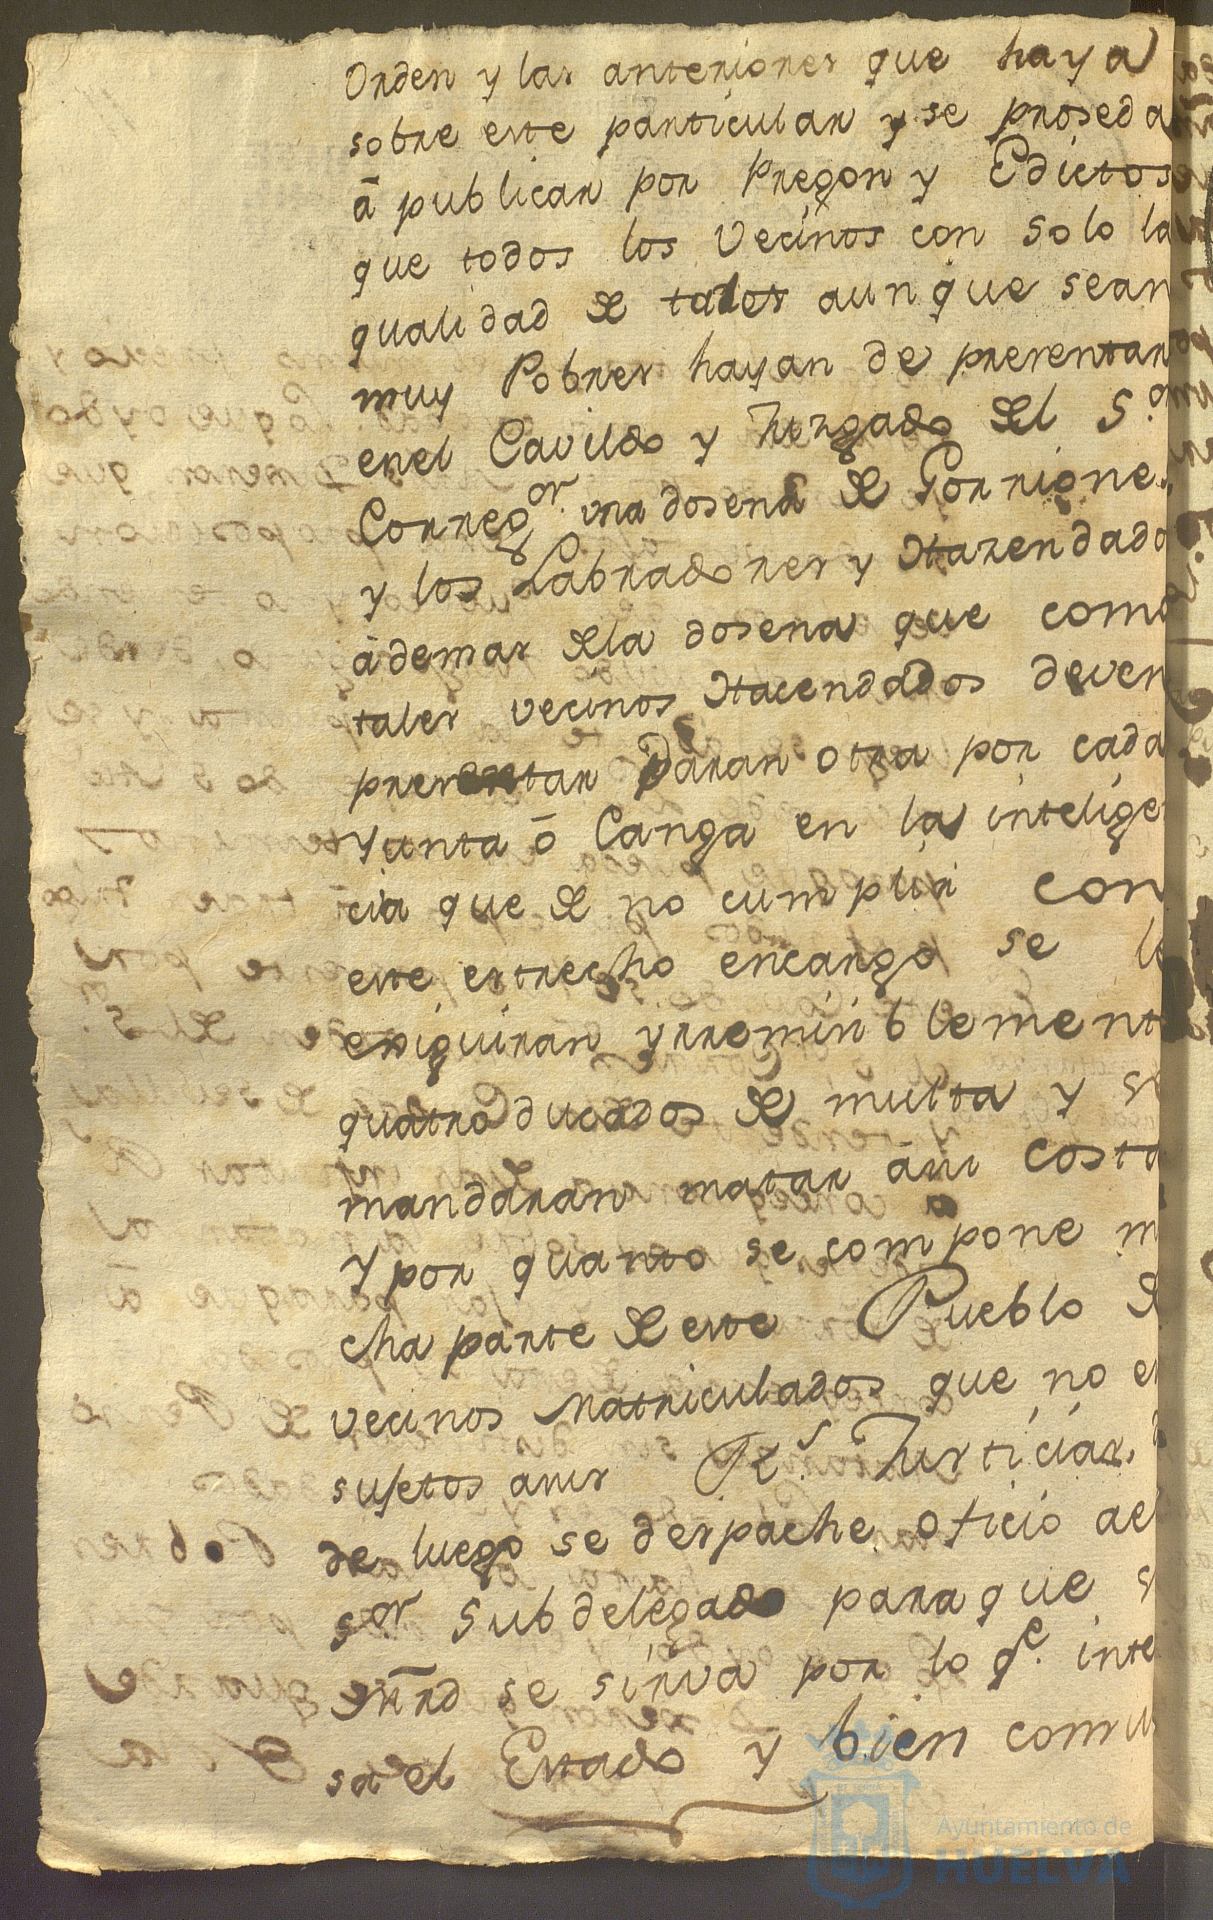 Orden y las anteriores que haya
sobre este particular y se proseda
â publicar por Pregon y Edictos
que todos los Vecinos con solo la
qualidad de tales aunque sean
muy Pobres hayan de presentar
enel Cavildo y Jusgado del S.or
Correg.or una dosena de Gorriones
y los Labradores y Hazendado
âdemas dela dosena que como
tales vecinos Hacendados deven
presentar Daran otra por cada
Yunta ô Canga en la intelige
cia que de no cumplir con
este estrecho encargo se l
exiguiran yrremisiblement
quatro ducados de multa y s
mandaran matar âsu costa
Y por quanto se compone m
cha parte de este Pueblo d
vecinos Matriculados que no e
sujetos asus R.s Justicias,
de luego se despache oficio ael
s.or Subdelegado paraque s
mrd se sirva por lo q.e inte
sa el Estado y bien comu
Ayuntamiento de
HUELVA